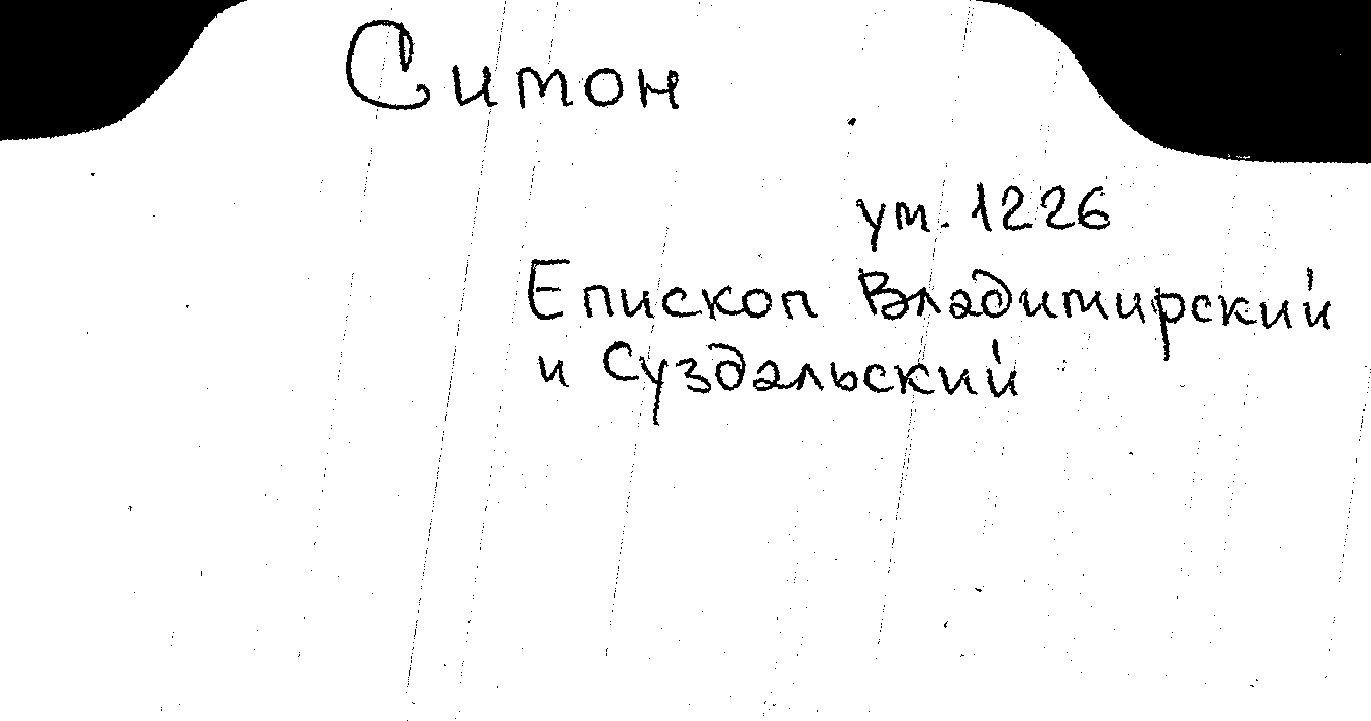 Симон
ум. 1226
Епископ Владимирский
и Суздальский